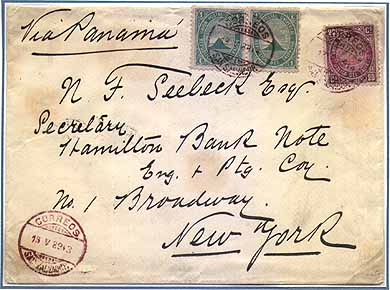 Via Panamá
N. F. Seebeck Esqr
Secretary
Hamilton Bank Note
Eng. & Ptg. Coy.
No. 1 Broadway.
New York
CORREOS